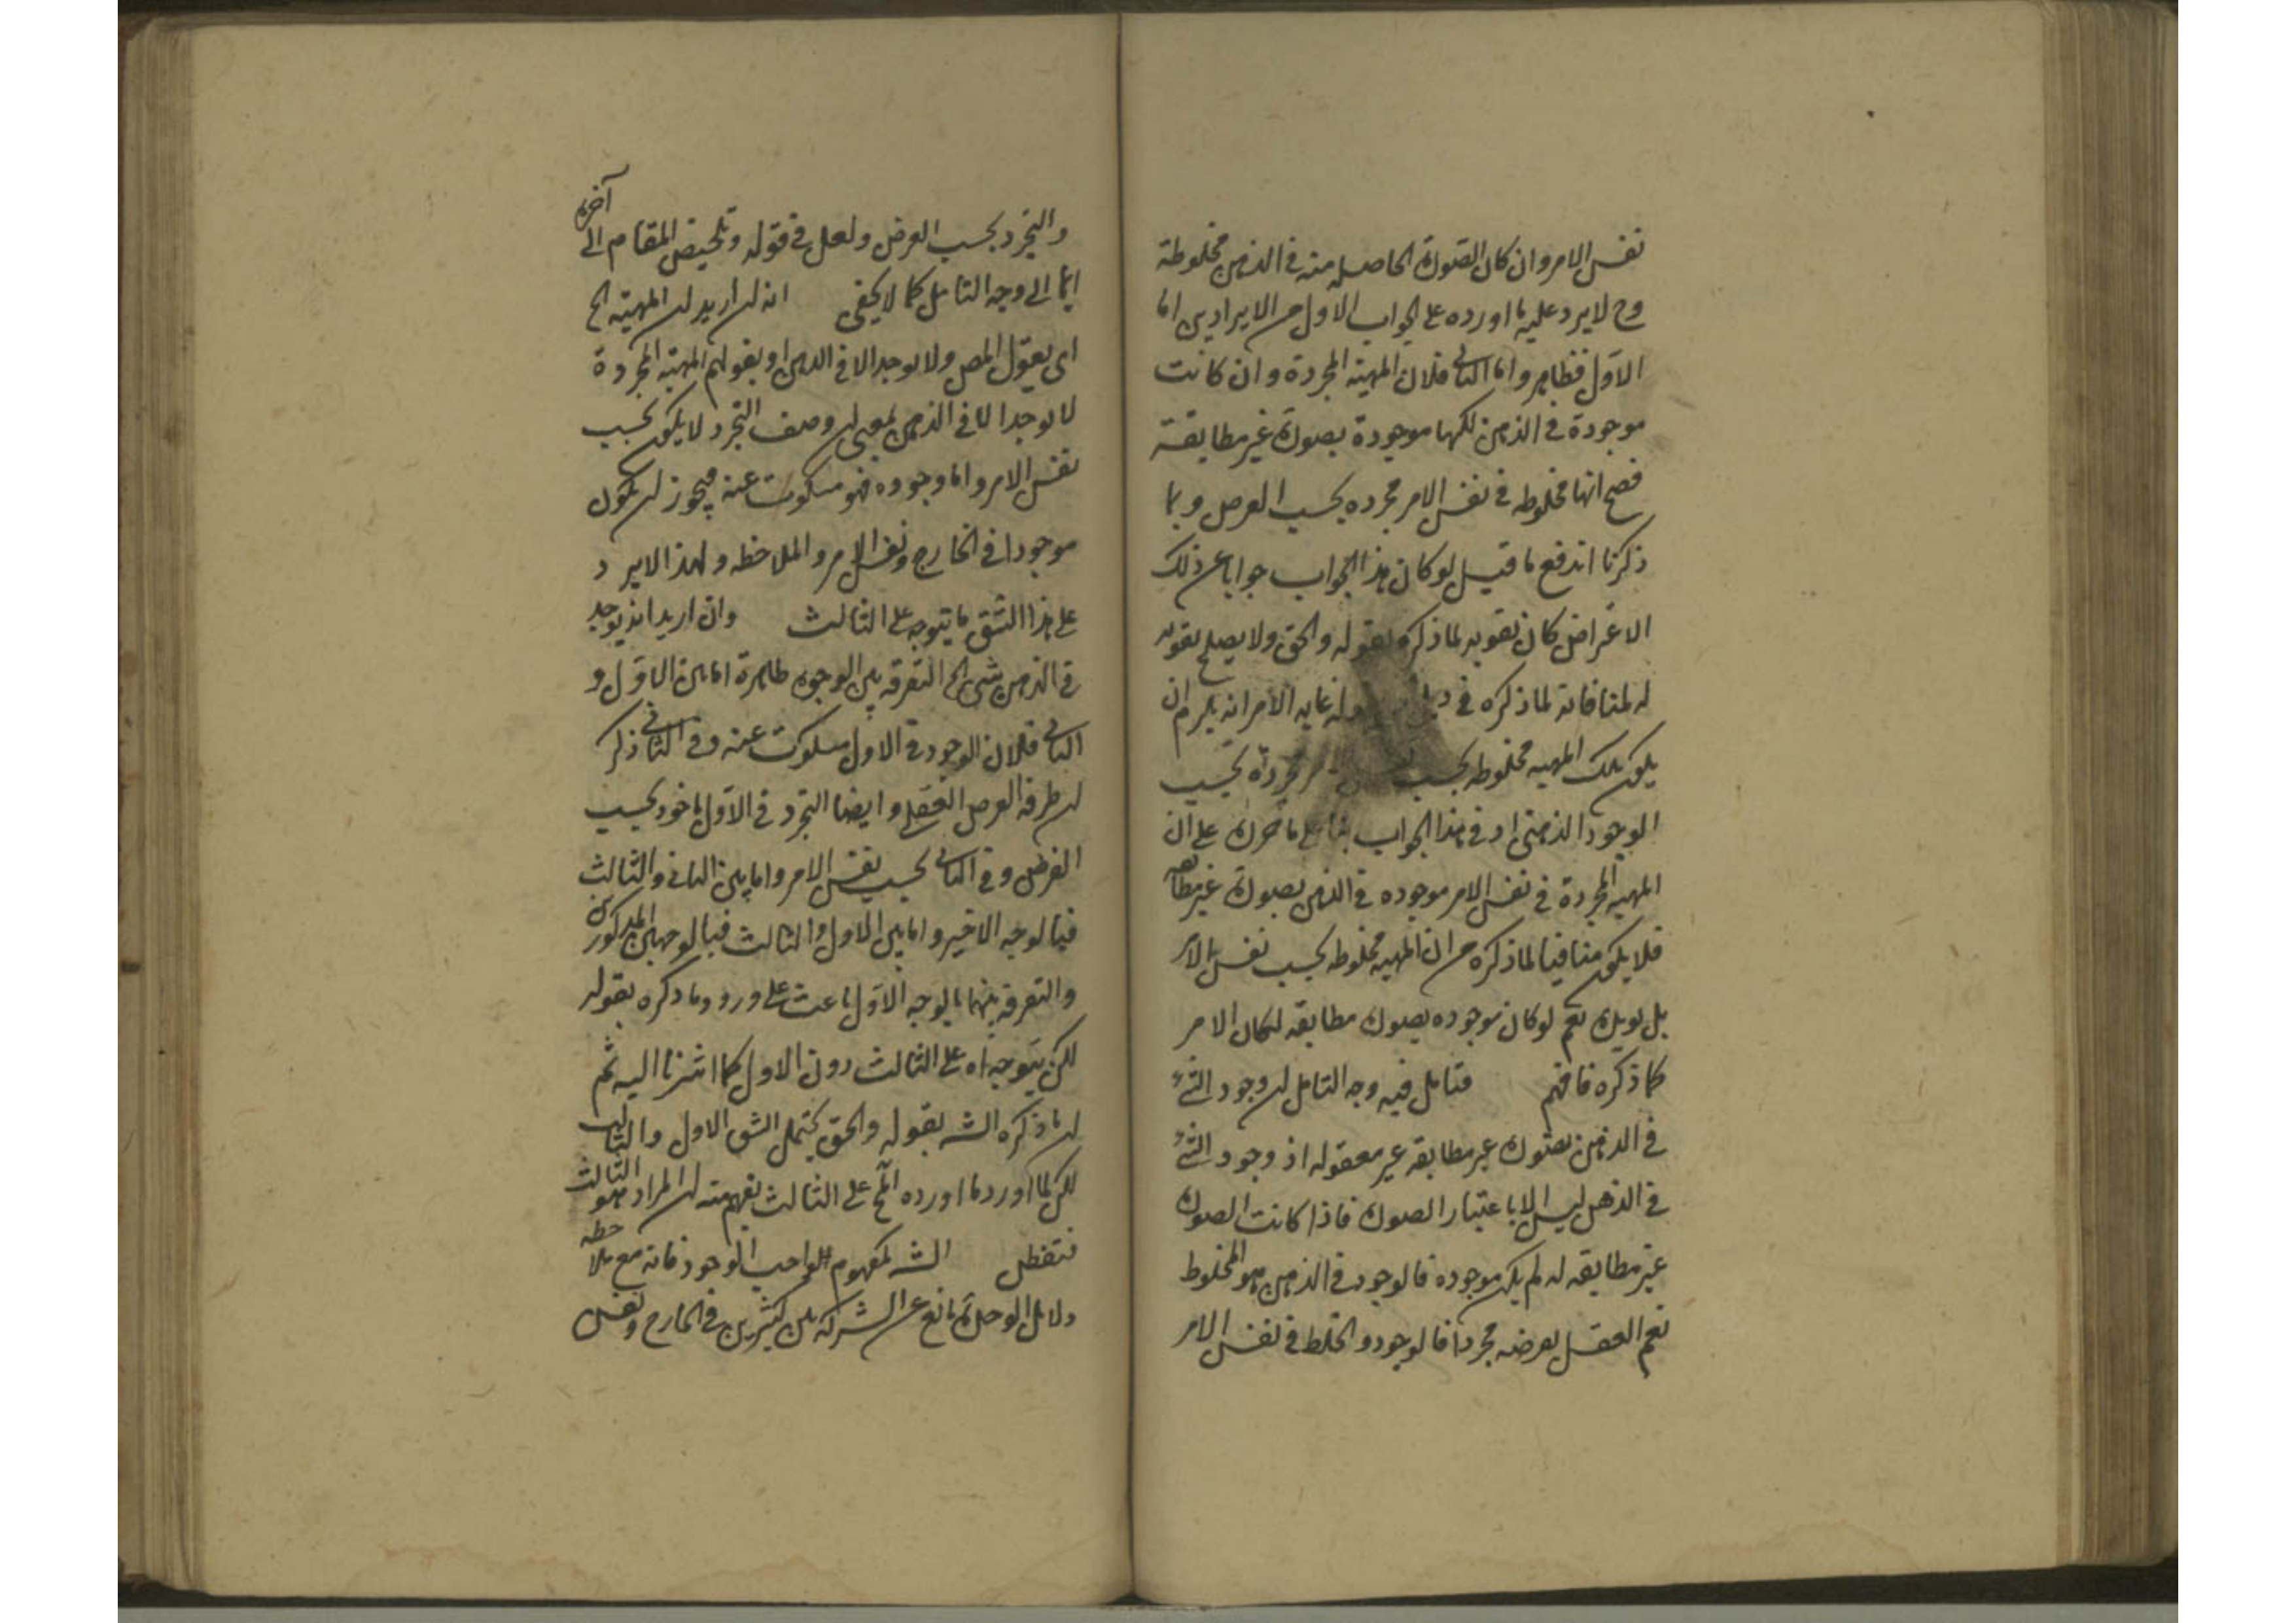 نفس الامر وان كان الصورة الحاصلة منه في الذهن مخلوطة
وح لا يرد عليه ما اورده على الجواب الاول من الايرادين اما
الاول فظاهر واما الثاني فلان المهية المجردة وان كانت
موجودة في الذهن لكنها موجودة بصورة غير مطابقة
فصح انها مخلوطه في نفس الامر مجرده بحسب العرض وبما
ذكرنا اندفع ما قيل لو كان هذا الجواب جوابا عن ذلك
الاعراض كان تقويه لما ذكره بقوله والحق ولا يصلح بقوله
له لمنافاته لما ذكره في غايه الامر انه يلزم ان
يكون تلك المهيه مخلوطه بحسب مجردة بحسب
الوجود الذهني اد في هذا الجواب بنا على ما حررناه على ان
المهيه المجردة في نفس الامر موجوده في الذهن بصورة غير مطابقه
فلا يكون منافيا لما ذكره من ان المهيه مخلوطه بحسب نفس الامر
بل يؤيده نعم لو كان موجوده بصورة مطابقه لكان الامر
كما ذكره فافهم فتامل فيه وجه التامل ان وجود الشئ
في الذهن بصورة غير مطابقه غير معقوله اذ وجود الشئ
في الذهن ليس الا باعتبار الصورة فاذا كانت الصورة
غير مطابقه له لم يكن موجوده فالوجود في الذهن هو المخلوط
نعم العقل يعرضه مجردا فالوجود والخلط في نفس الامر
والتجرد بحسب العرض ولعل في قوله وتلخيص المقام الى آخره
ايما الى وجه التامل كما لا يخفى انه ان اريد ان المهية الخ
اى بقول المص ولا يوجد الا في الذهن او بقولهم المهية المجردة
لا يوجد الا في الذهن بمعنى ان وصف التجرد لا يكون بحسب
نفس الامر واما وجوده فهو مسكوت عنه فيجوز ان يكون
موجودا في الخارج ونفس الامر والملاحظه ولهذا لا يرد
على هذا الشق ما يتوجه على الثالث وان اريد انه يوجد
في الذهن شئ الخ التفرقه بين الوجوه ظاهرة اما بين الاول و
الثاني فلان الوجود في الاول مسكوت عنه وفي الثاني ذكر
ان ظرفه العرض العقلي وايضا التجرد في الاول ماخوذ بحسب
الفرض وفي الثاني بحسب نفس الامر واما بين الثاني والثالث
فبالوجه الاخير واما بين الاول والثالث فبالوجهين المذكورين
والتفرقه بينهما بالوجه الاول باعث على ورود ما ذكره بقوله
لكن يتوجه اه على الثالث دون الاول كما اشرنا اليه ثم
ان ما ذكره الشه بقوله والحق يحتمل الشق الاول والثالث
لكن لما اورد ما اورده الخ على الثالث يفهم منه ان المراد هو الثالث
فتفطن الشه كمفهوم الواجب الوجود فانه مع ملاحظه
دلايل الوحدة مانع عن الشركه بين كثيرين في الخارج ونفس